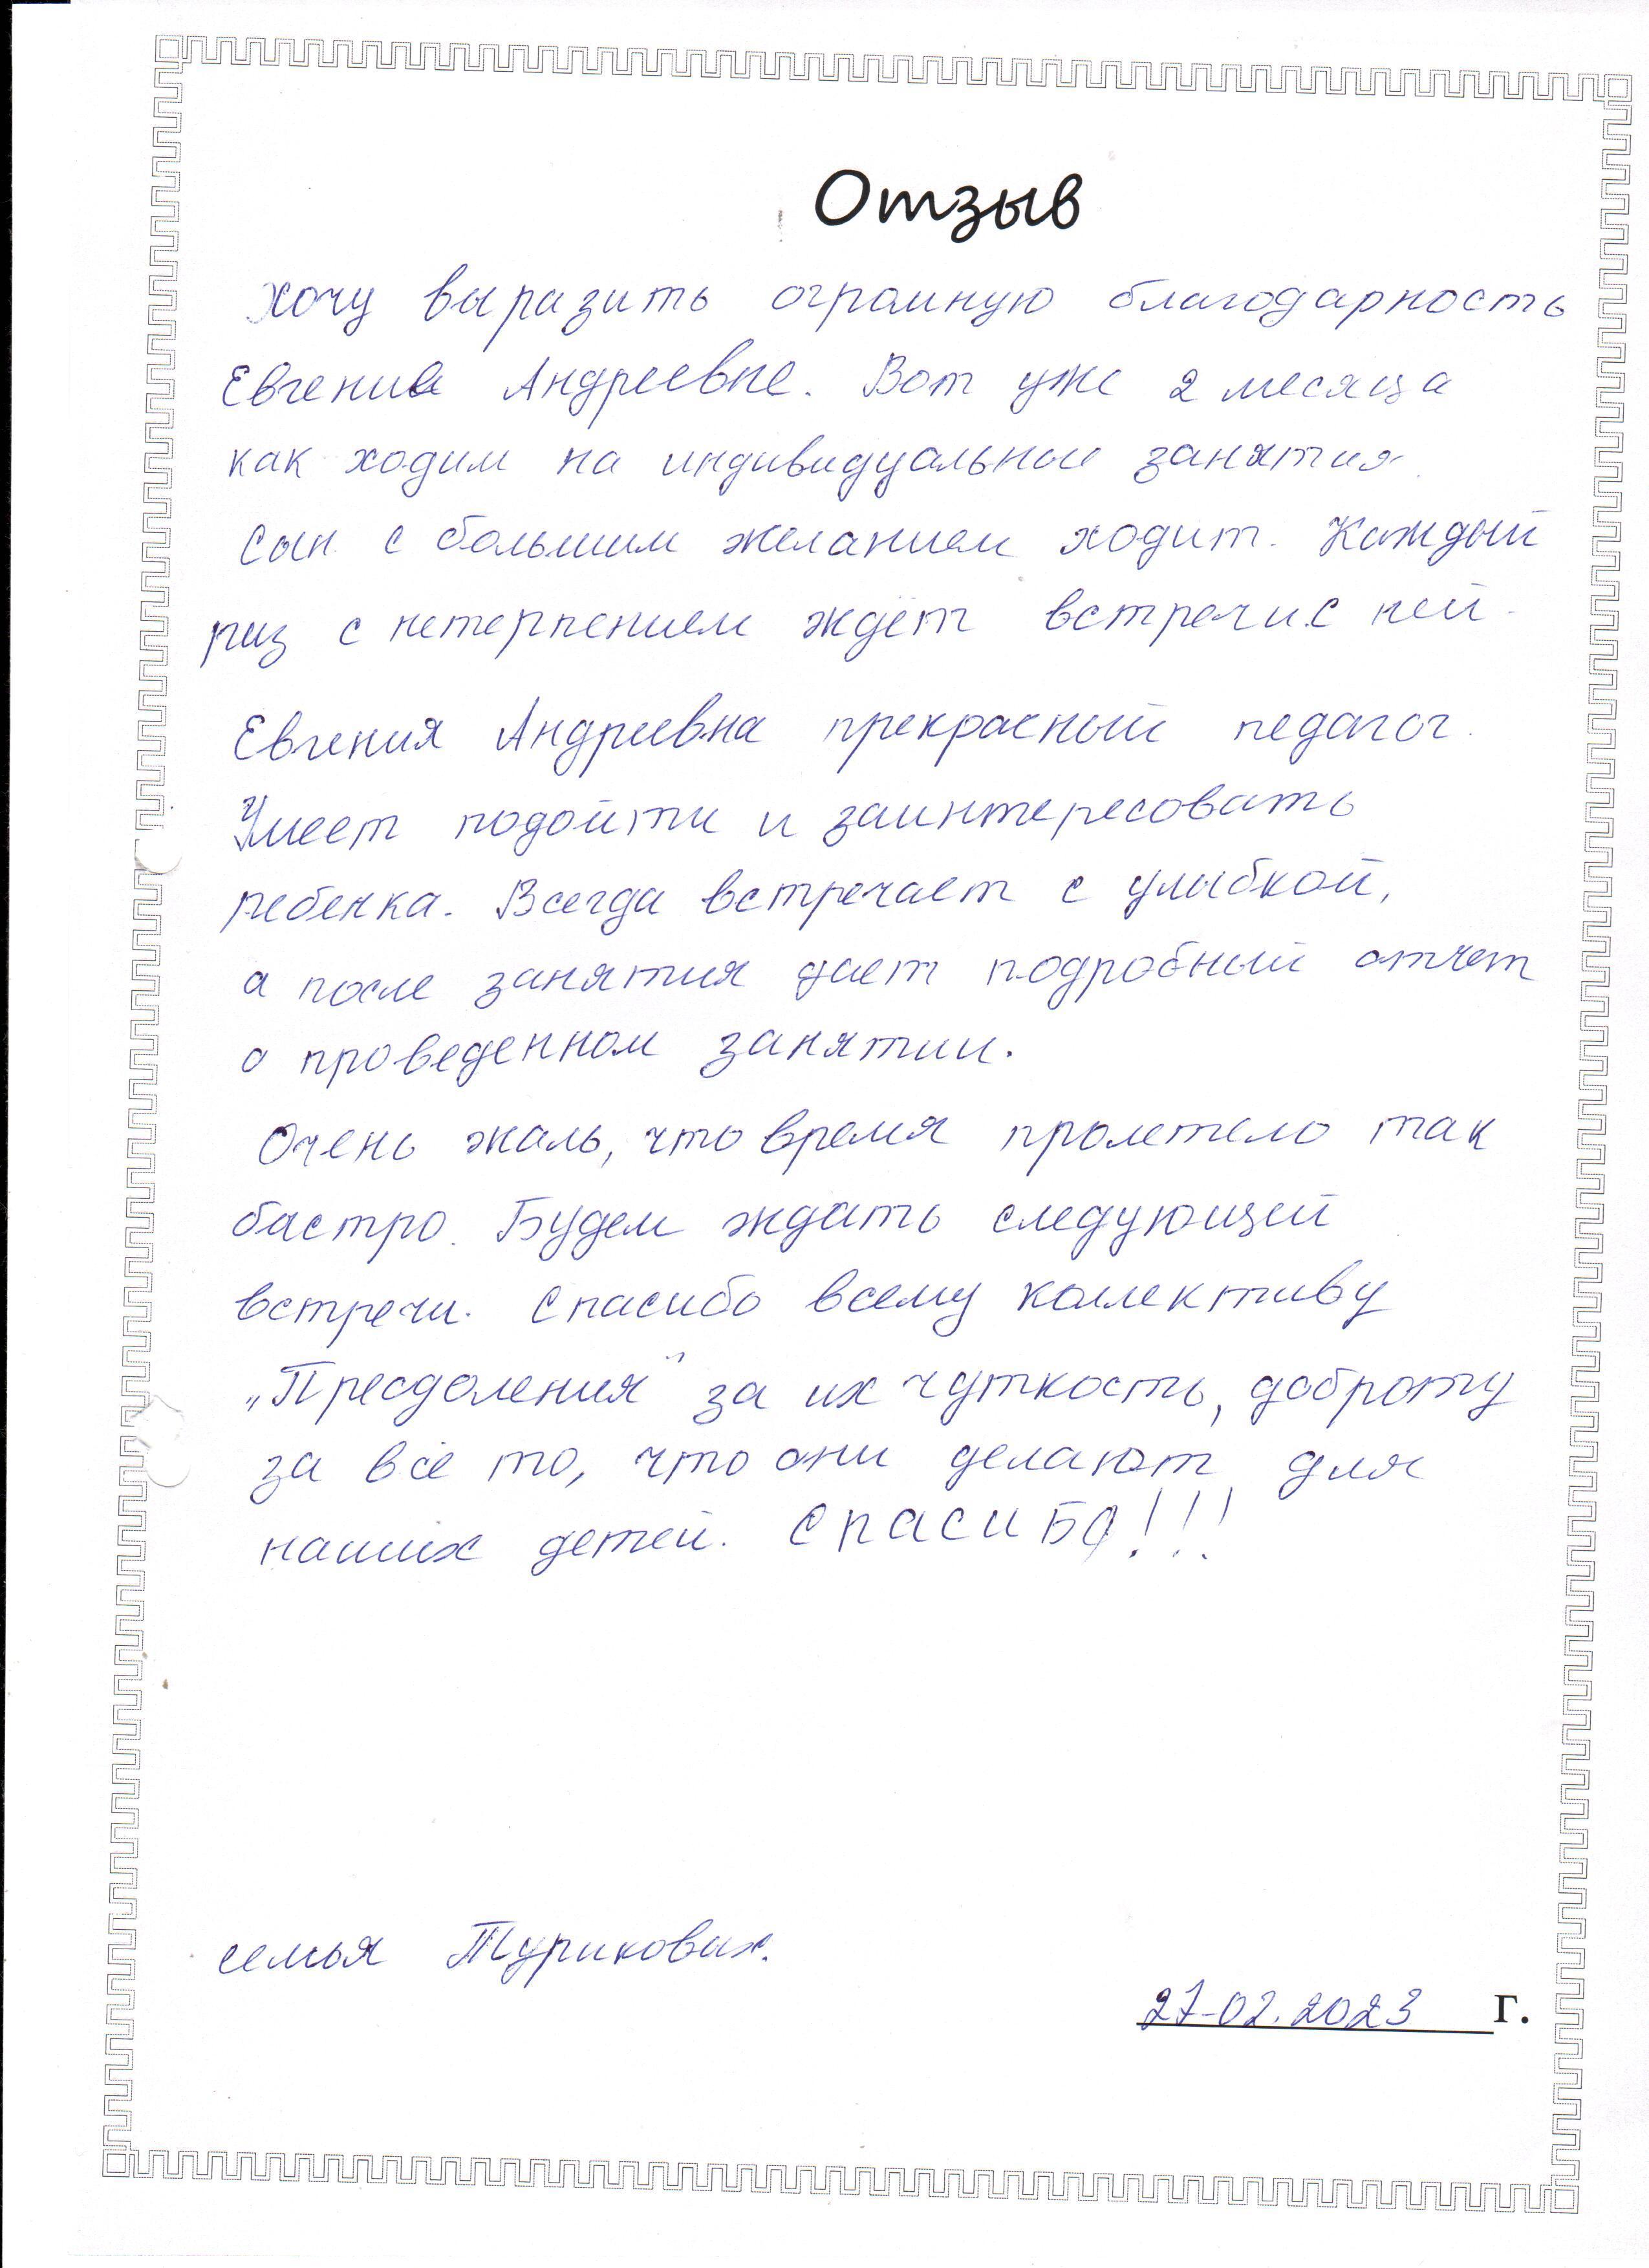 Отзыв
Хочу выразить огромную благодарность
Евгение Андреевне. Вот уже 2 месяца
как ходим на индивидуальные занятия.
Сын с большим желанием ходит. Каждый
раз с нетерпением ждёт встречи с ней.
Евгения Андреевна прекрасный педагог.
Умеет подойти и заинтересовать
ребенка. Всегда встречает с улыбкой,
а после занятия дает подробный отчет
о проведенном занятии.
Очень жаль, что время пролетело так
быстро. Будем ждать следующей
встречи. Спасибо всему коллективу
„Преодоления" за их чуткость, доброту
за всё то, что они делают для
наших детей. СПАСИБО!!!
семья Туриковых.
27-02.2023 г.